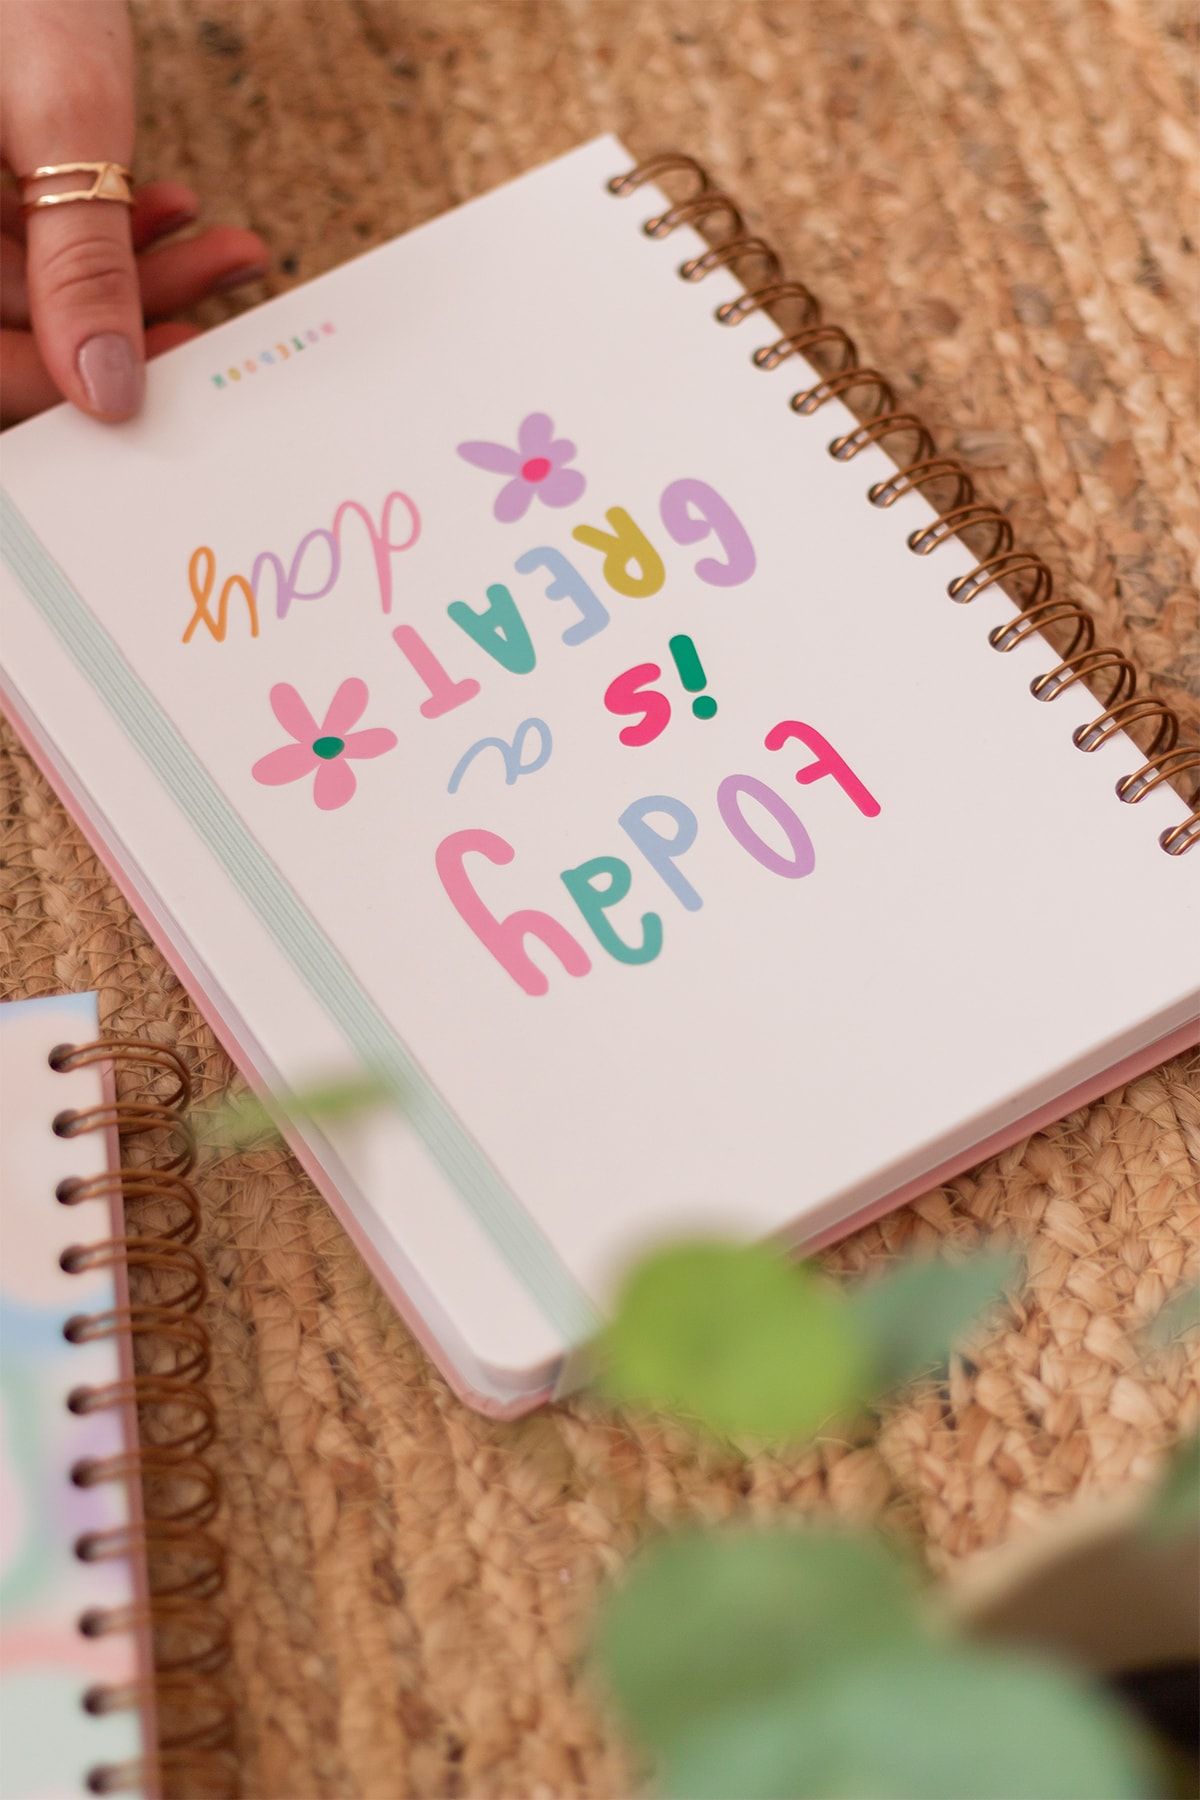 today
is a
GREAT
day
NOTEBOOK